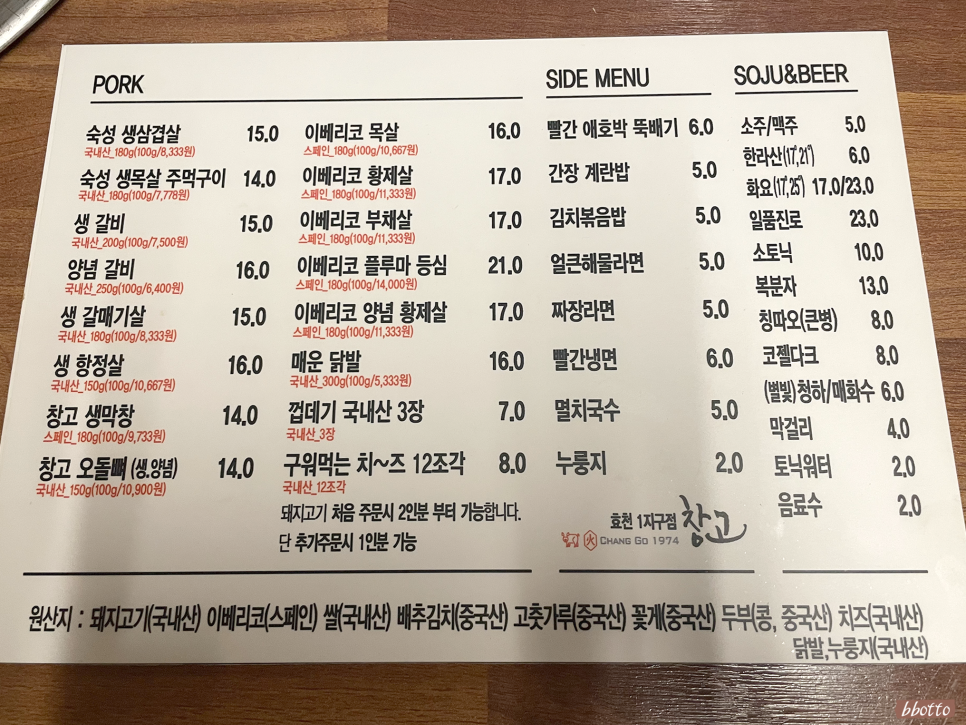 PORK
숙성 생삼겹살 15.0
국내산_180g(100g/8,333원)
숙성 생목살 주먹구이 14.0
국내산_180g(100g/7,778원)
생 갈비 15.0
국내산_200g(100g/7,500원)
양념 갈비 16.0
국내산_250g(100g/6,400원)
생 갈매기살 15.0
국내산_180g(100g/8,333원)
생 항정살 16.0
국내산_150g(100g/10,667원)
창고 생막창 14.0
스페인_180g(100g/9,733원)
창고 오돌뼈 (생.양념) 14.0
국내산_150g(100g/10,900원)
이베리코 목살 16.0
스페인_180g(100g/10,667원)
이베리코 황제살 17.0
스페인_180g(100g/11,333원)
이베리코 부채살 17.0
스페인_180g(100g/11,333원)
이베리코 플루마 등심 21.0
스페인_180g(100g/14,000원)
이베리코 양념 황제살 17.0
스페인_180g(100g/11,333원)
매운 닭발 16.0
국내산_300g(100g/5,333원)
껍데기 국내산 3장 7.0
국내산_3장
구워먹는 치~즈 12조각 8.0
국내산_12조각
돼지고기 처음 주문시 2인분 부터 가능합니다.
단 추가주문시 1인분 가능
SIDE MENU
빨간 애호박 뚝배기 6.0
간장 계란밥 5.0
김치볶음밥 5.0
얼큰해물라면 5.0
짜장라면 5.0
빨간냉면 6.0
멸치국수 5.0
누룽지 2.0
효천 1지구점 창고
火 CHANG GO 1974
SOJU&BEER
소주/맥주 5.0
한라산(17˚,21˚) 6.0
화요(17˚,25˚) 17.0/23.0
일품진로 23.0
소토닉 10.0
복분자 13.0
칭따오(큰병) 8.0
코젤다크 8.0
(별빛)청하/매화수 6.0
막걸리 4.0
토닉워터 2.0
음료수 2.0
원산지 : 돼지고기(국내산) 이베리코(스페인) 쌀(국내산) 배추김치(중국산) 고춧가루(중국산) 꽃게(중국산) 두부(콩, 중국산) 치즈(국내산)
닭발,누룽지(국내산)
bbotto